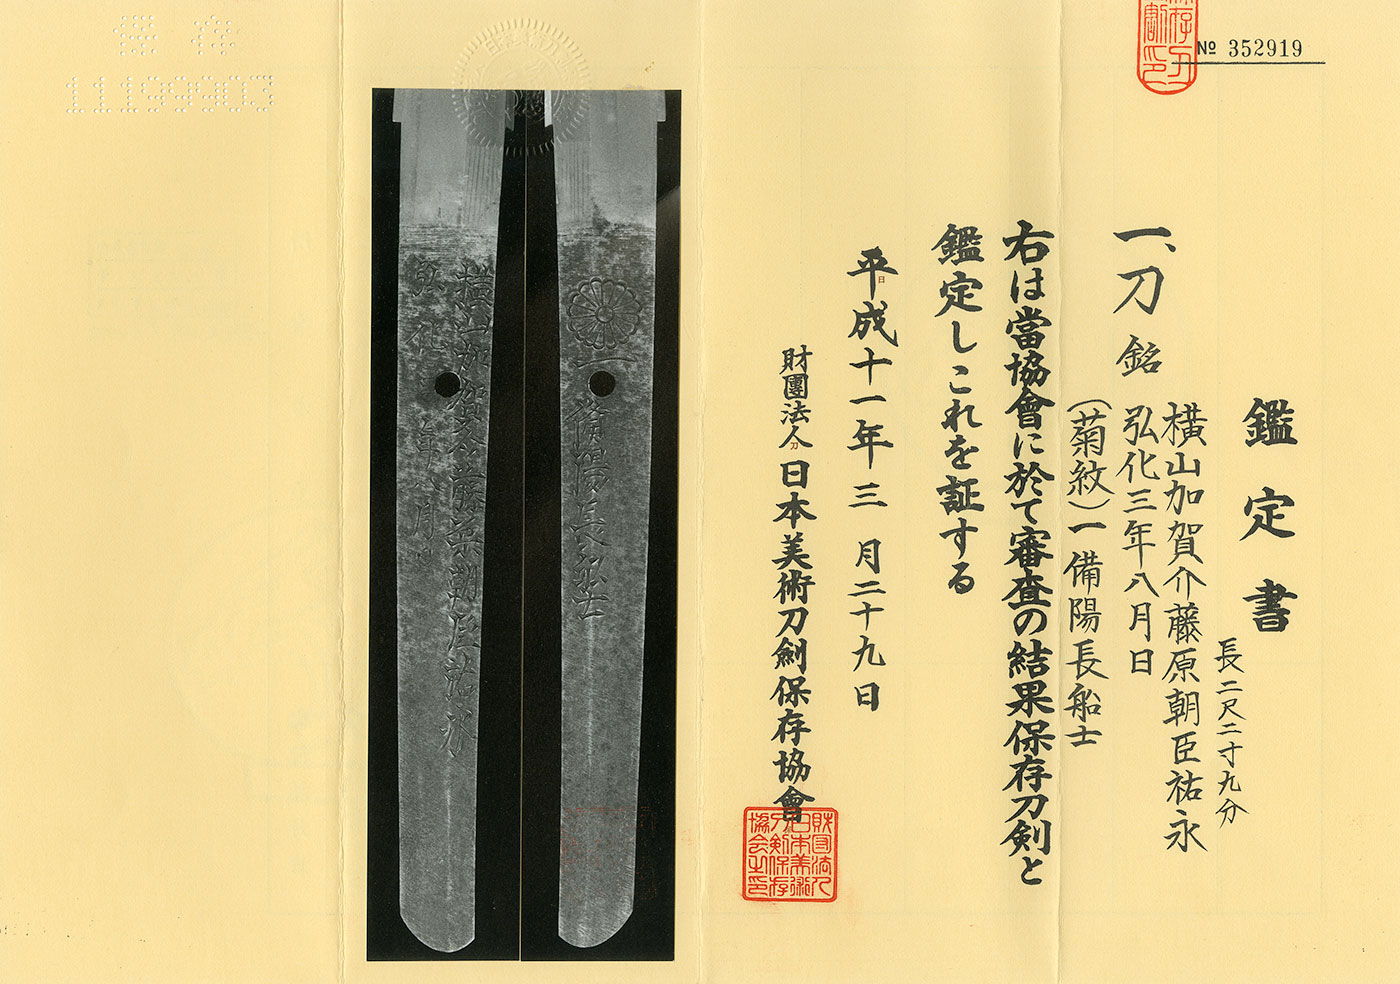 No 352919
鑑定書
一、刀 銘
長二尺二寸九分
横山加賀介藤原朝臣祐永
弘化三年八月日
(菊紋)一備陽長船士
右は當協會に於て審査の結果保存刀剣と
鑑定しこれを証する
平成十一年三月二十九日
財團法人日本美術刀劍保存協會
財団法人
日本美術
刀剣保存
協会之印
横山加賀介藤原朝臣祐永
弘化 年八月
一備陽長船士
保存
11199903